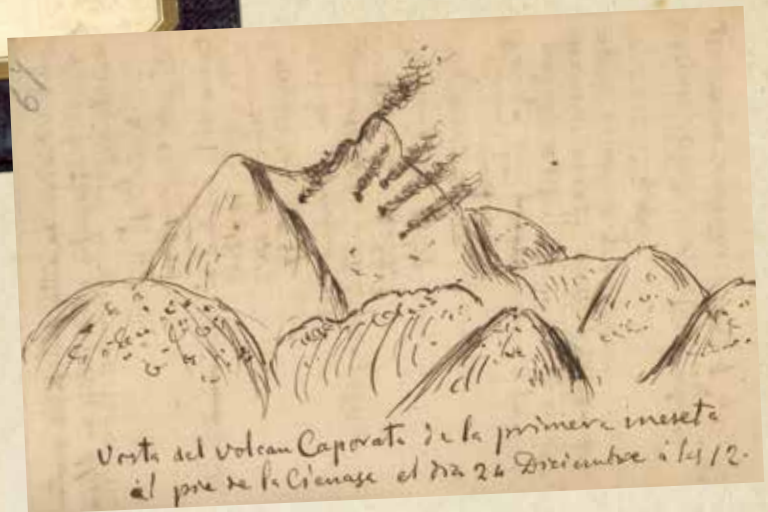 67
Vista del volcan Caporata de la primera meseta
al pie de la Cienaga el dia 24 Diciembre á las 12.